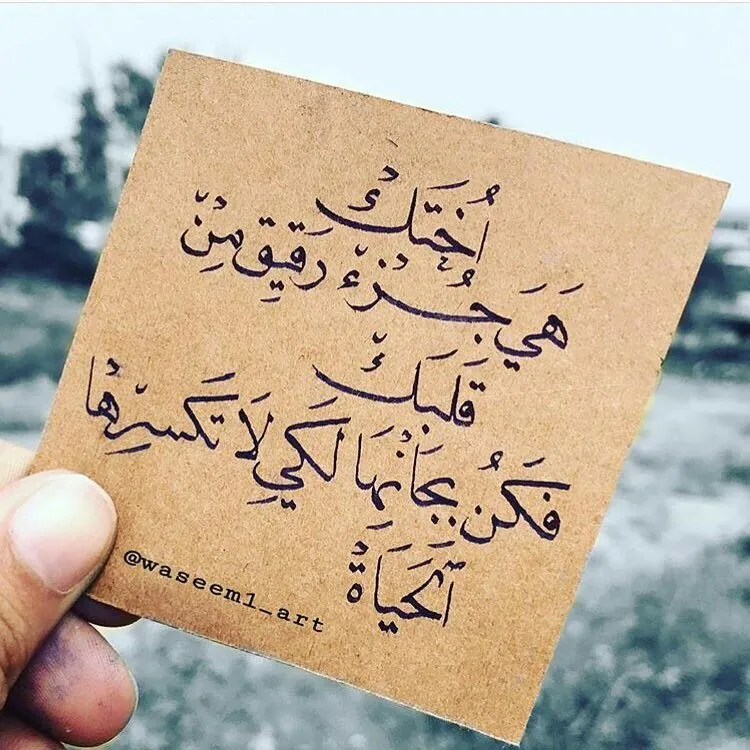 أُختَكْ
هَيَ جُزءْ رَقيِق مِنْ
قَلبَكْ
فَكَنُ بِجَانْبِهَا لَكَيِ لَا تَكَسرِهْا
اَلحَيَاةْ
@waseem1_art